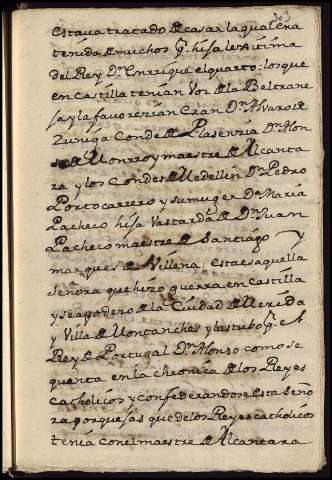 303
estava tratado de casar la qual era
tenida de muchos pr. hija lexitima
del Rey Dn. Enrrique el quarto: los que
en Castilla tenian Voz de la Beltrane
ja y la favorezian Eran Dn. Alvaro de
Zuniga Conde de Plasenzia Dn. Alon
so de Monrroy maestre de Alcanta
ra y los Condes de Medellin Dn. Pedro
Portocarrero y su muger Da. Maria
Pacheco hija Vastarda de Dn. Juan
Pacheco maestre de Santiago y
marques de Villena; esta es aquella
señora que hizo guerra en Castilla
y se apodero de la Ciudad de Merida
y Villa de Montanches y la tubo pr. el
Rey de Portugal Dn. Alonso como se
quenta en la chronica de los Reyes
Catholicos y confederandose esta Seño
ra por quejas que de los Reyes catholicos
tenia con el maestre de Alcantara